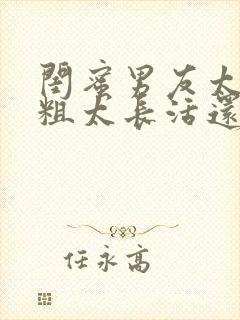 閨蜜男友太
粗太长活還
任永高